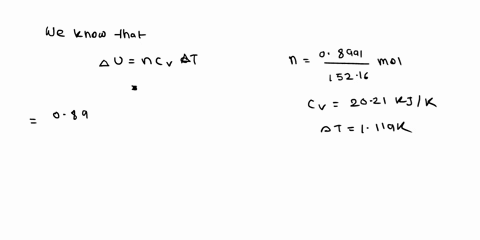 We know that
△U = nCv △T
= 0.89
n = 0.8991 / 152.16 mol
Cv = 20.21 KJ/K
△T = 1.119K